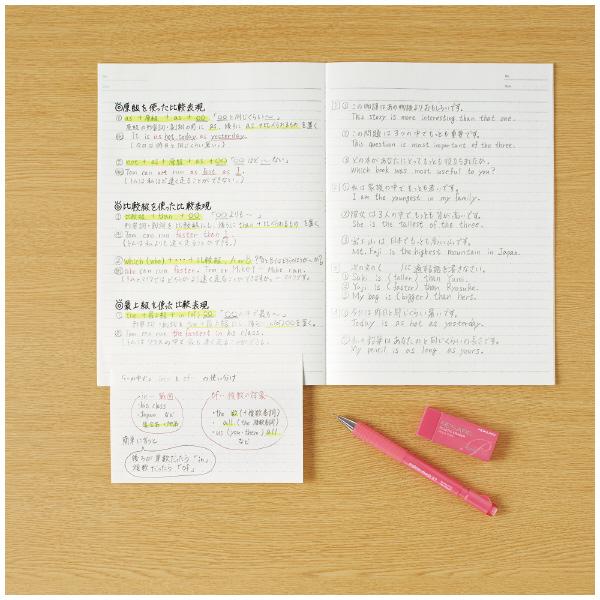 ◎原級を使った比較表現
① as + 原級 + as + ○○ 「○○と同じくらい〜」
It is as hot today as yesterday.
(今日は昨日と同じくらい暑い。)
② not + as + 原級 + as + ○○ 「○○ほど〜ない」
Tom can not run as fast as I.
(トムは私ほど速く走ることができない。)
◎比較級を使った比較表現
① 比較級 + than + ○○ 「○○よりも〜」
Tom can run faster than I.
(トムは私よりも速く走ることができる。)
② Which (Who) + 比較級, A or B
Who can run faster, Tom or Mike? - Mike can.
◎最上級を使った比較表現
① the + 最上級 + in (of) ○○ 「○○の中で最も〜」
Tom can run the fastest in his class.
(トムはクラスの中で最も速く走ることができる。)
「〜の中で」 in と of の使い分け
in… 範囲
his class
Japan など
of… 複数の対象
・the 数 (+複数名詞)
・all (the 複数名詞)
・us (you・them) all
など
簡単に言うと
後ろが単数だったら「in」
複数だったら「of」
① この物語はあの物語よりおもしろいです。
This story is more interesting than that one.
② この問題は3つの中でもっとも重要です。
This question is most important of the three.
③ どの本があなたにとってもっとも役立ちましたか。
Which book was most useful to you?
① 私は家族の中でもっとも若いです。
I am the youngest in my family.
② 彼女は3人の中でもっとも背が高いです。
She is the tallest of the three.
③ 富士山は日本でもっとも高い山です。
Mt. Fuji is the highest mountain in Japan.
① Suki is (taller) than Yumi.
② Yuji is (faster) than Kyosuke.
③ My bag is (bigger) than hers.
① 今日は昨日と同じくらい暑いです。
Today is as hot as yesterday.
② 私の鉛筆はあなたのと同じくらいの長さです。
My pencil is as long as yours.